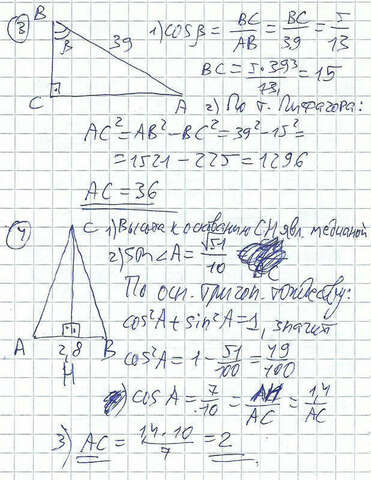 3
B
β
39
C
A
1) cos β = BC/AB = BC/39 = 5/13
BC = 5·39³/13 = 15
2) По т. Пифагора:
AC² = AB² − BC² = 39² − 15² =
= 1521 − 225 = 1296
AC = 36
4
C
A
2,8
B
H
1) Высота к основанию CH явл. медианой
2) sin ∠A = √51/10
По осн. тригон. тождеству:
cos²A + sin²A = 1, значит
cos²A = 1 − 51/100 = 49/100
cos A = 7/10 = AH/AC = 1,4/AC
3) AC = 14·10/7 = 2